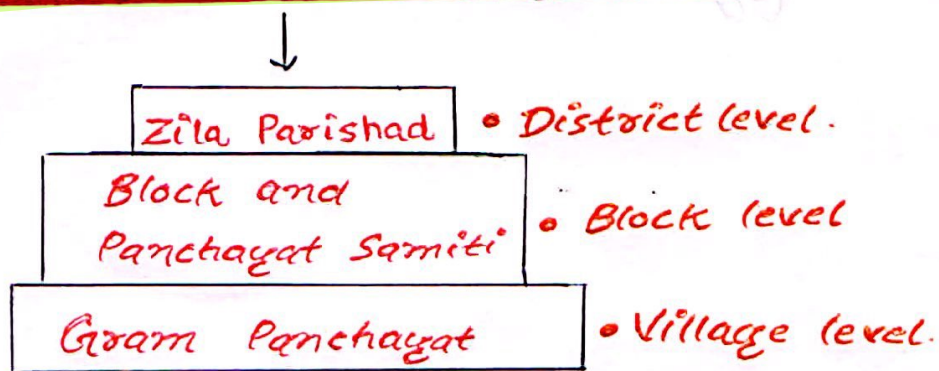 Zila Parishad • District level.
Block and
Panchayat Samiti • Block level
Gram Panchayat • Village level.